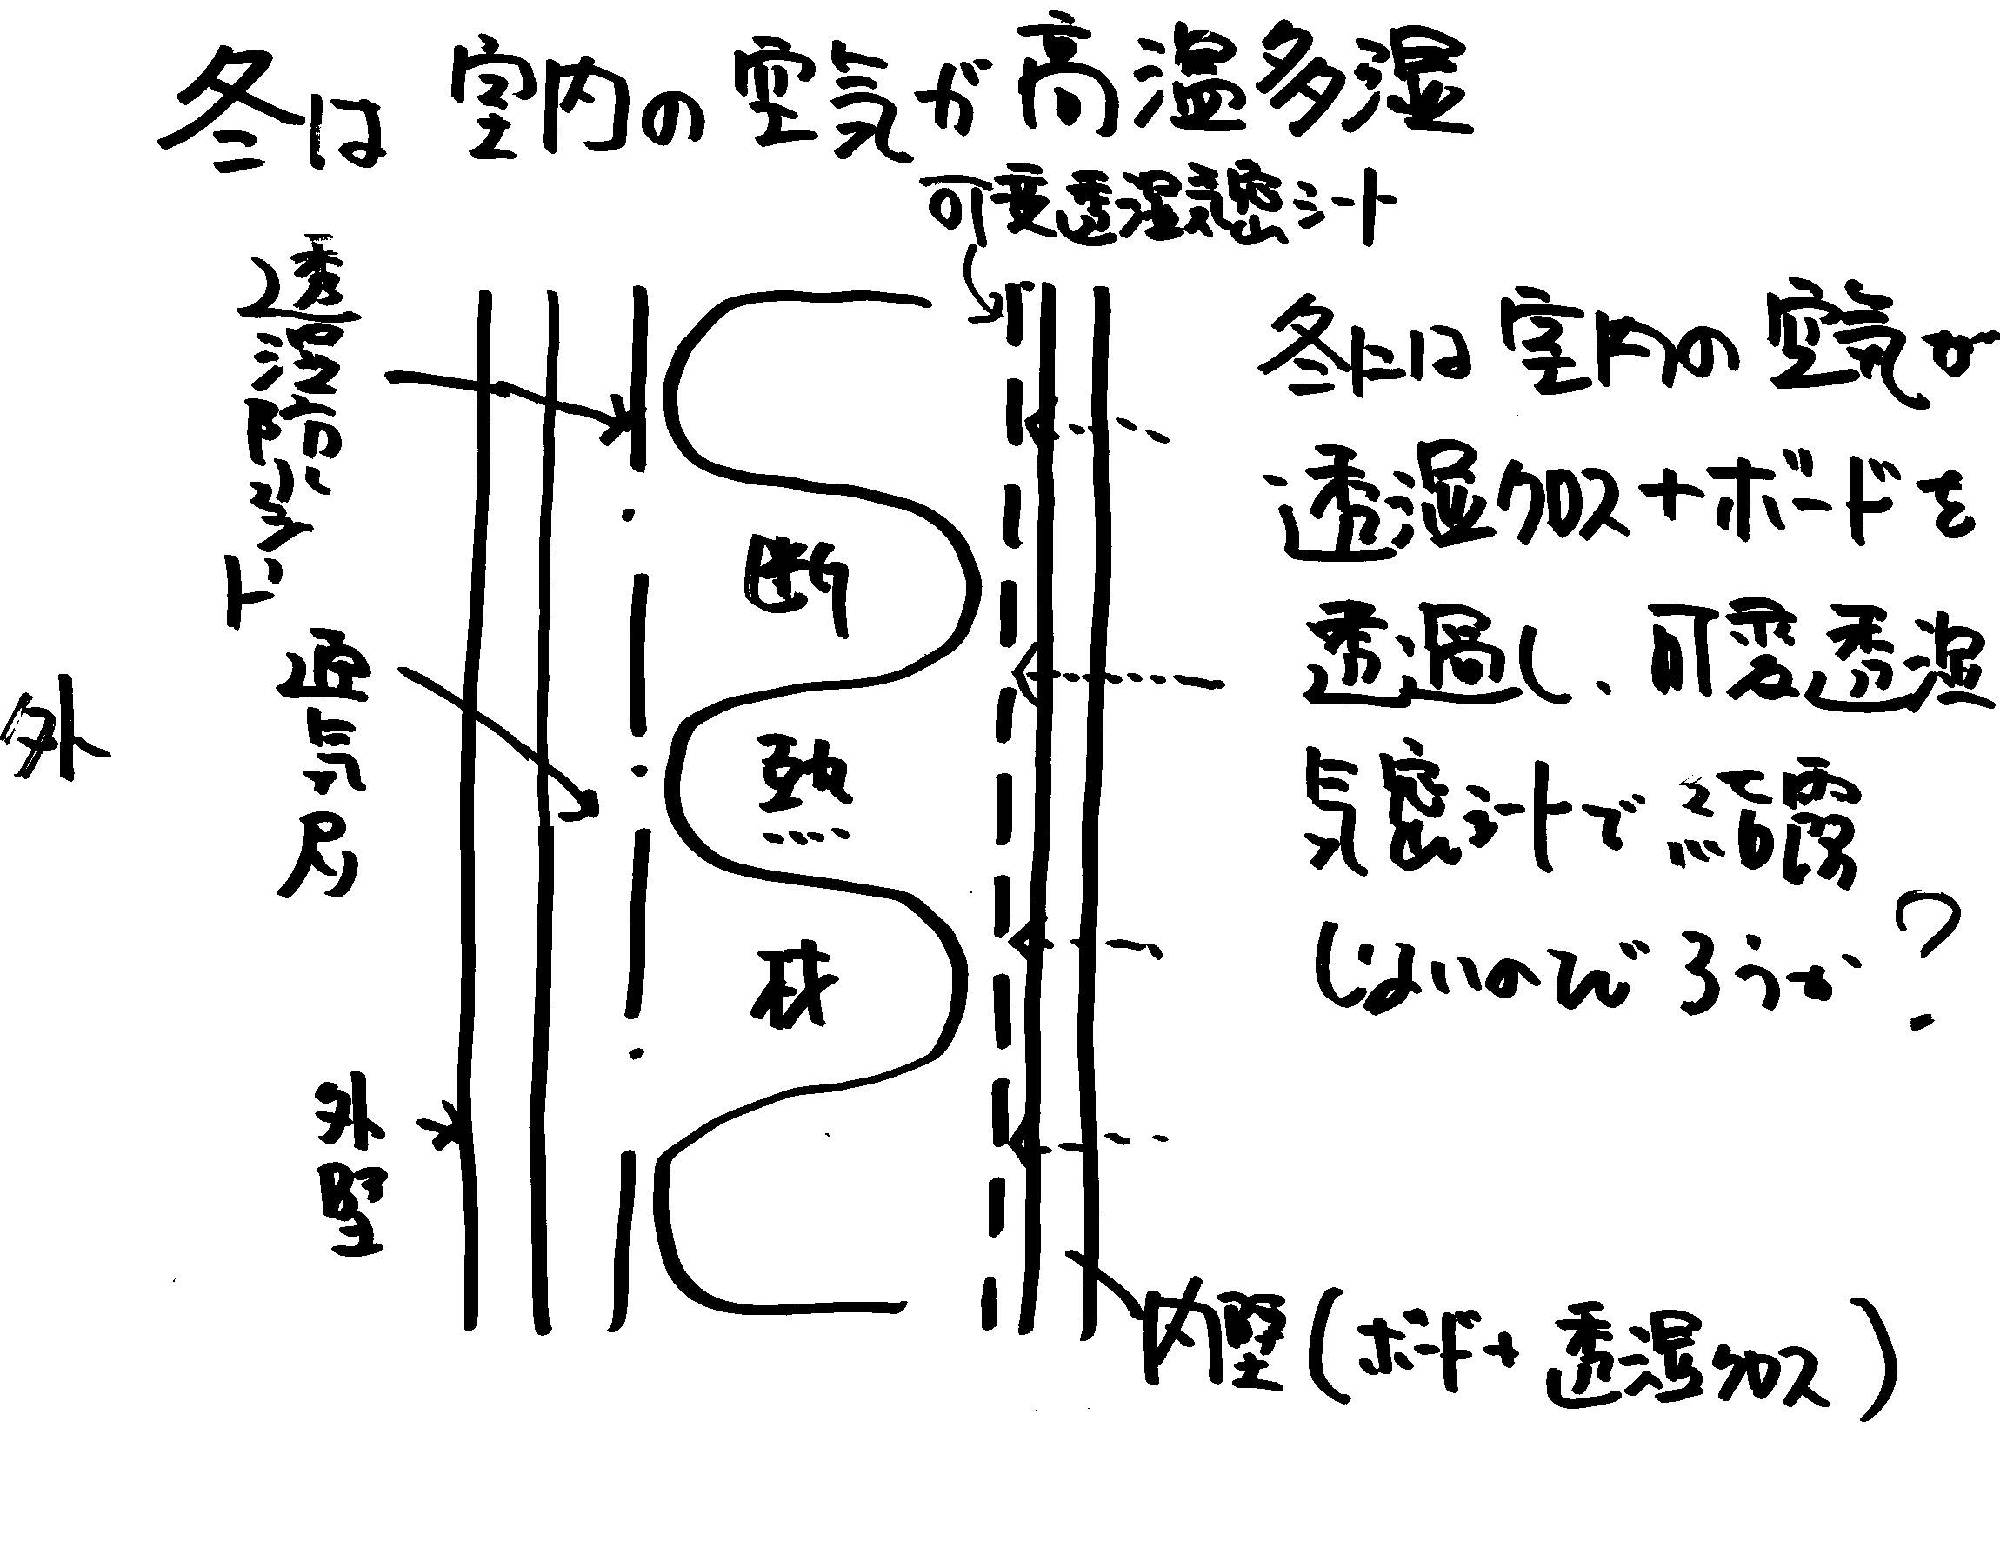 冬は室内の空気が高温多湿
可変透湿気密シート
透湿防水シート
通気層
外
外壁
断熱材
冬には室内の空気が
透湿クロス+ボードを
透過し、可変透湿
気密シートで結露
しないのだろうか?
内壁(ボード+透湿クロス)